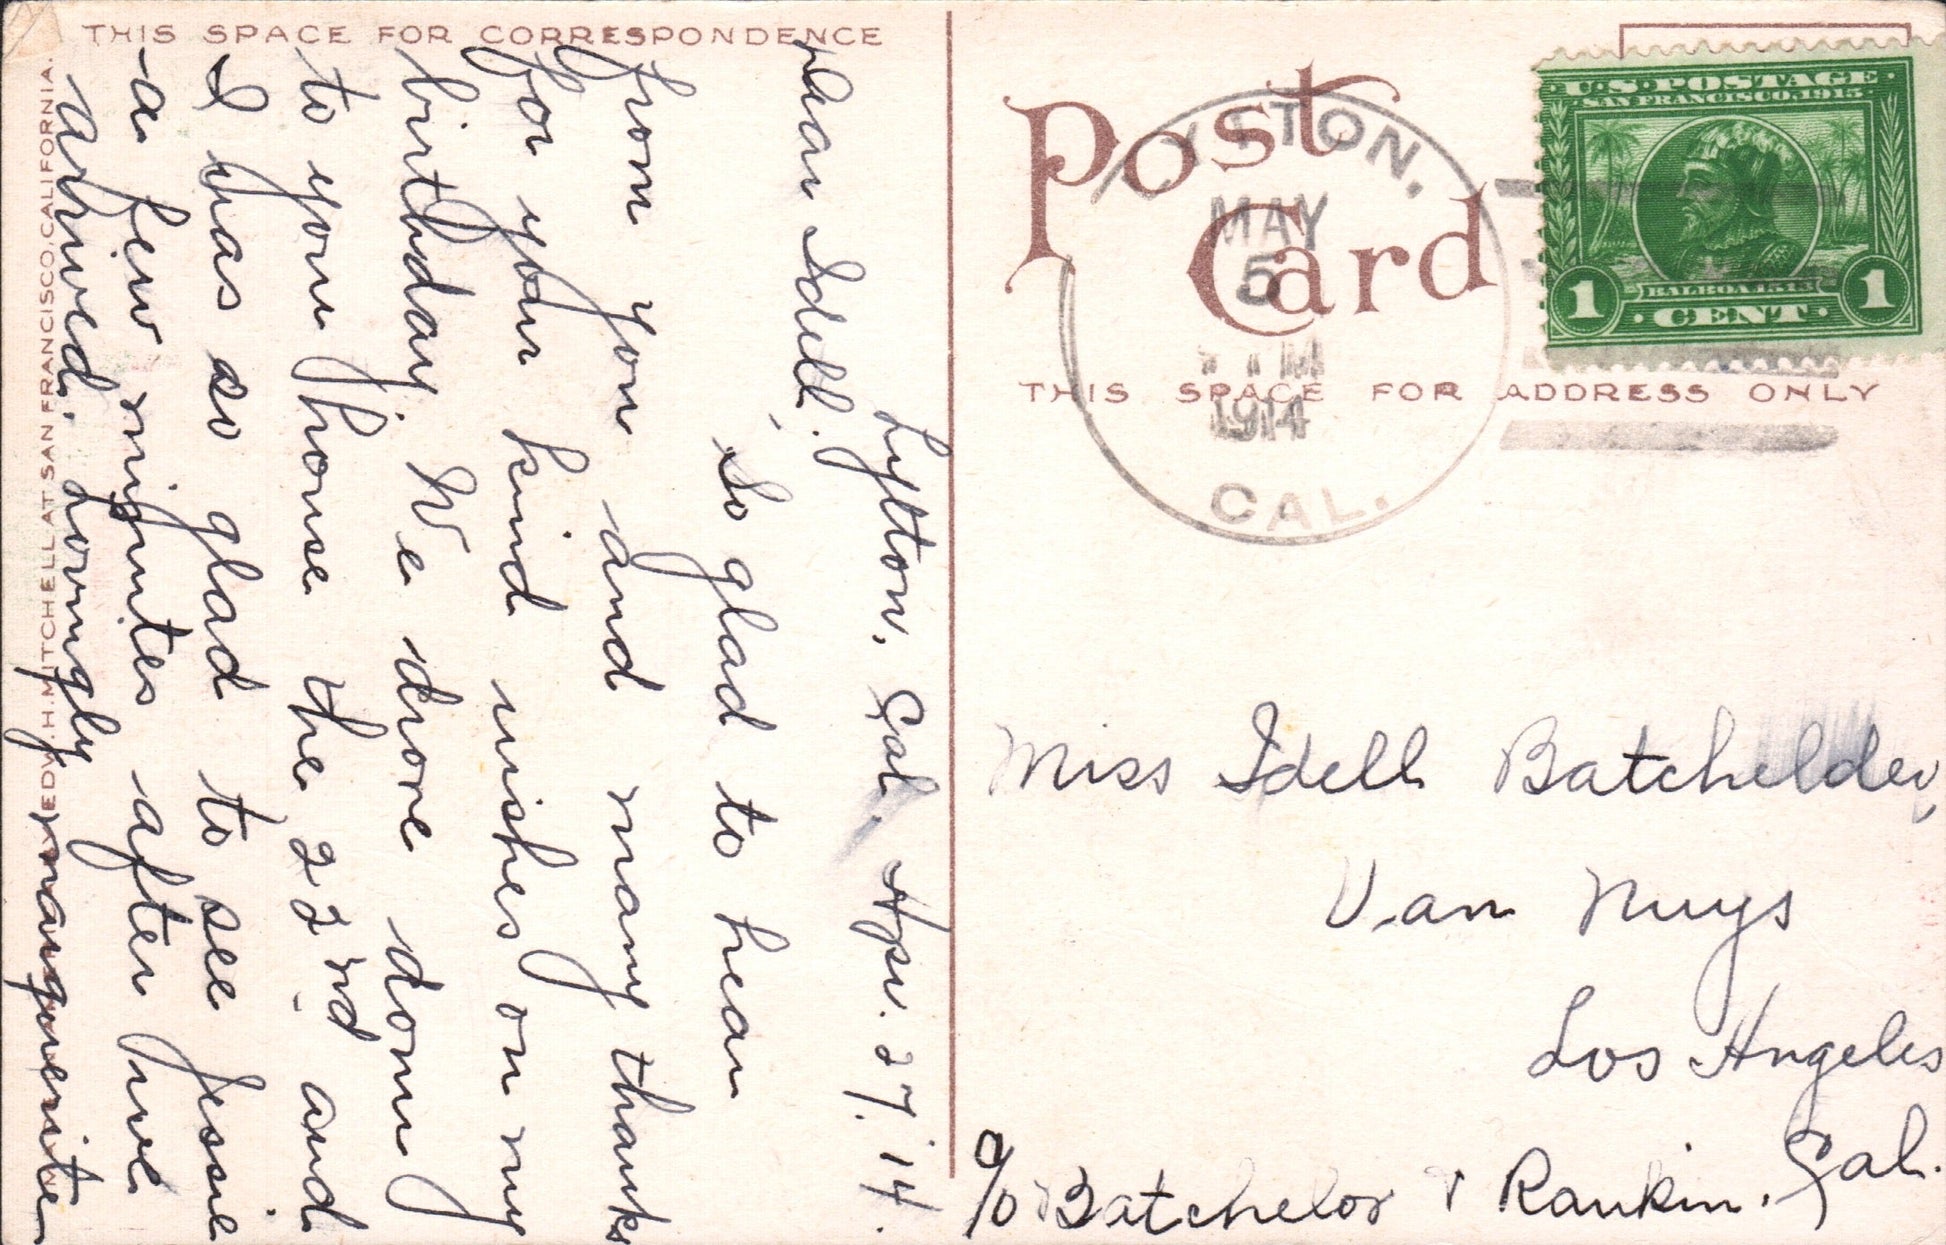 THIS SPACE FOR CORRESPONDENCE
Lytton, Cal. Apr. 27, '14.
Dear Idell,
So glad to hear
from you and many thanks
for your kind wishes on my
birthday. We drove down
to your house the 22nd and
I was so glad to see Jessie
a few minutes after I
arrived. Lovingly
Marguerite
EDW. H. MITCHELL AT SAN FRANCISCO, CALIFORNIA.
Post
Card
LYTTON,
MAY
5
1914
CAL.
U.S. POSTAGE
SAN FRANCISCO, 1915
BALBOA 1513
1 CENT 1
THIS SPACE FOR ADDRESS ONLY
Miss Idell Batchelder,
Van Nuys
Los Angeles
Cal.
c/o Batchelor & Rankin.